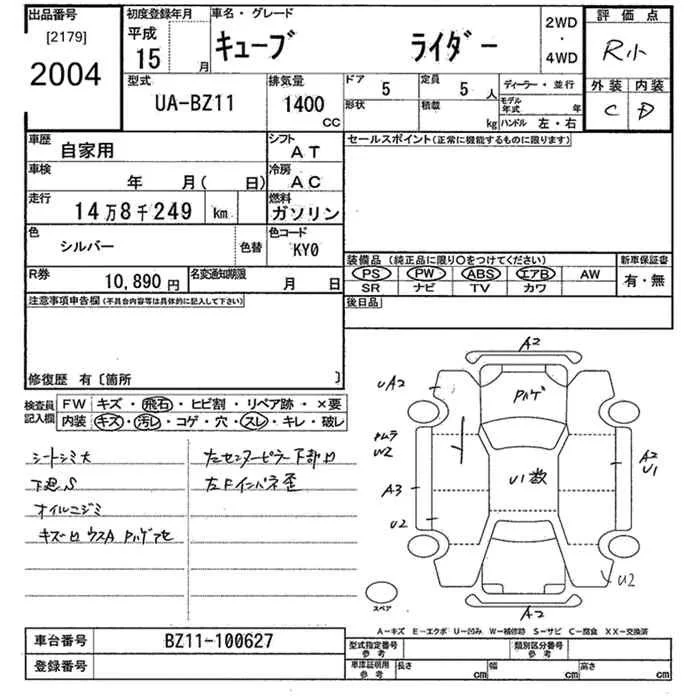 出品番号
[2179]
2004
初度登録年月
平成
15 月
車名・グレード
キューブ ライダー
2WD
・
4WD
評価点
R小
外装 内装
C D
型式
UA-BZ11
排気量
1400
CC
ドア 5
定員 5 人
形状
積載 kg
ディーラー・並行
モデル年式 年
ハンドル 左・右
車歴
自家用
シフト
AT
車検
年 月( 日)
冷房
AC
走行
14万8千249 km
燃料
ガソリン
色
シルバー
色替
色コード
KY0
R券
10,890 円
名変通知期限
月 日
セールスポイント(正常に機能するものに限ります)
装備品 (純正品に限り○をつけてください)
新車保証書
PS PW ABS エアB AW
SR ナビ TV カワ
有・無
後日品
注意事項申告欄(不具合内容等は具体的に記入して下さい)
修復歴 有〔箇所 〕
検査員記入欄
FW キズ・飛石・ヒビ割・リペア跡・×要
内装 キズ・汚レ・コゲ・穴・スレ・キレ・破レ
シートシミ大
下廻S
オイルニジミ
左センターピラー下部凹
左Fインパネ歪
A2
UA2
Pハゲ
ムラ
W2
A3
U2
U1数
A2
U1
U2
A2
スペア
A-キズ E-エクボ U-凹み W-補修跡 S-サビ C-腐食 XX-交換済
車台番号
BZ11-100627
登録番号
型式指定番号
参考
類別区分番号
参考
車庫証明用
参考
長さ cm
幅 cm
高さ cm